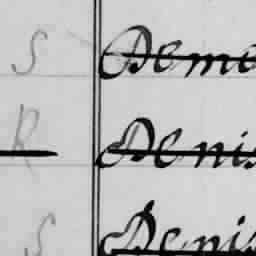 S Deme
R Denis
S Denis